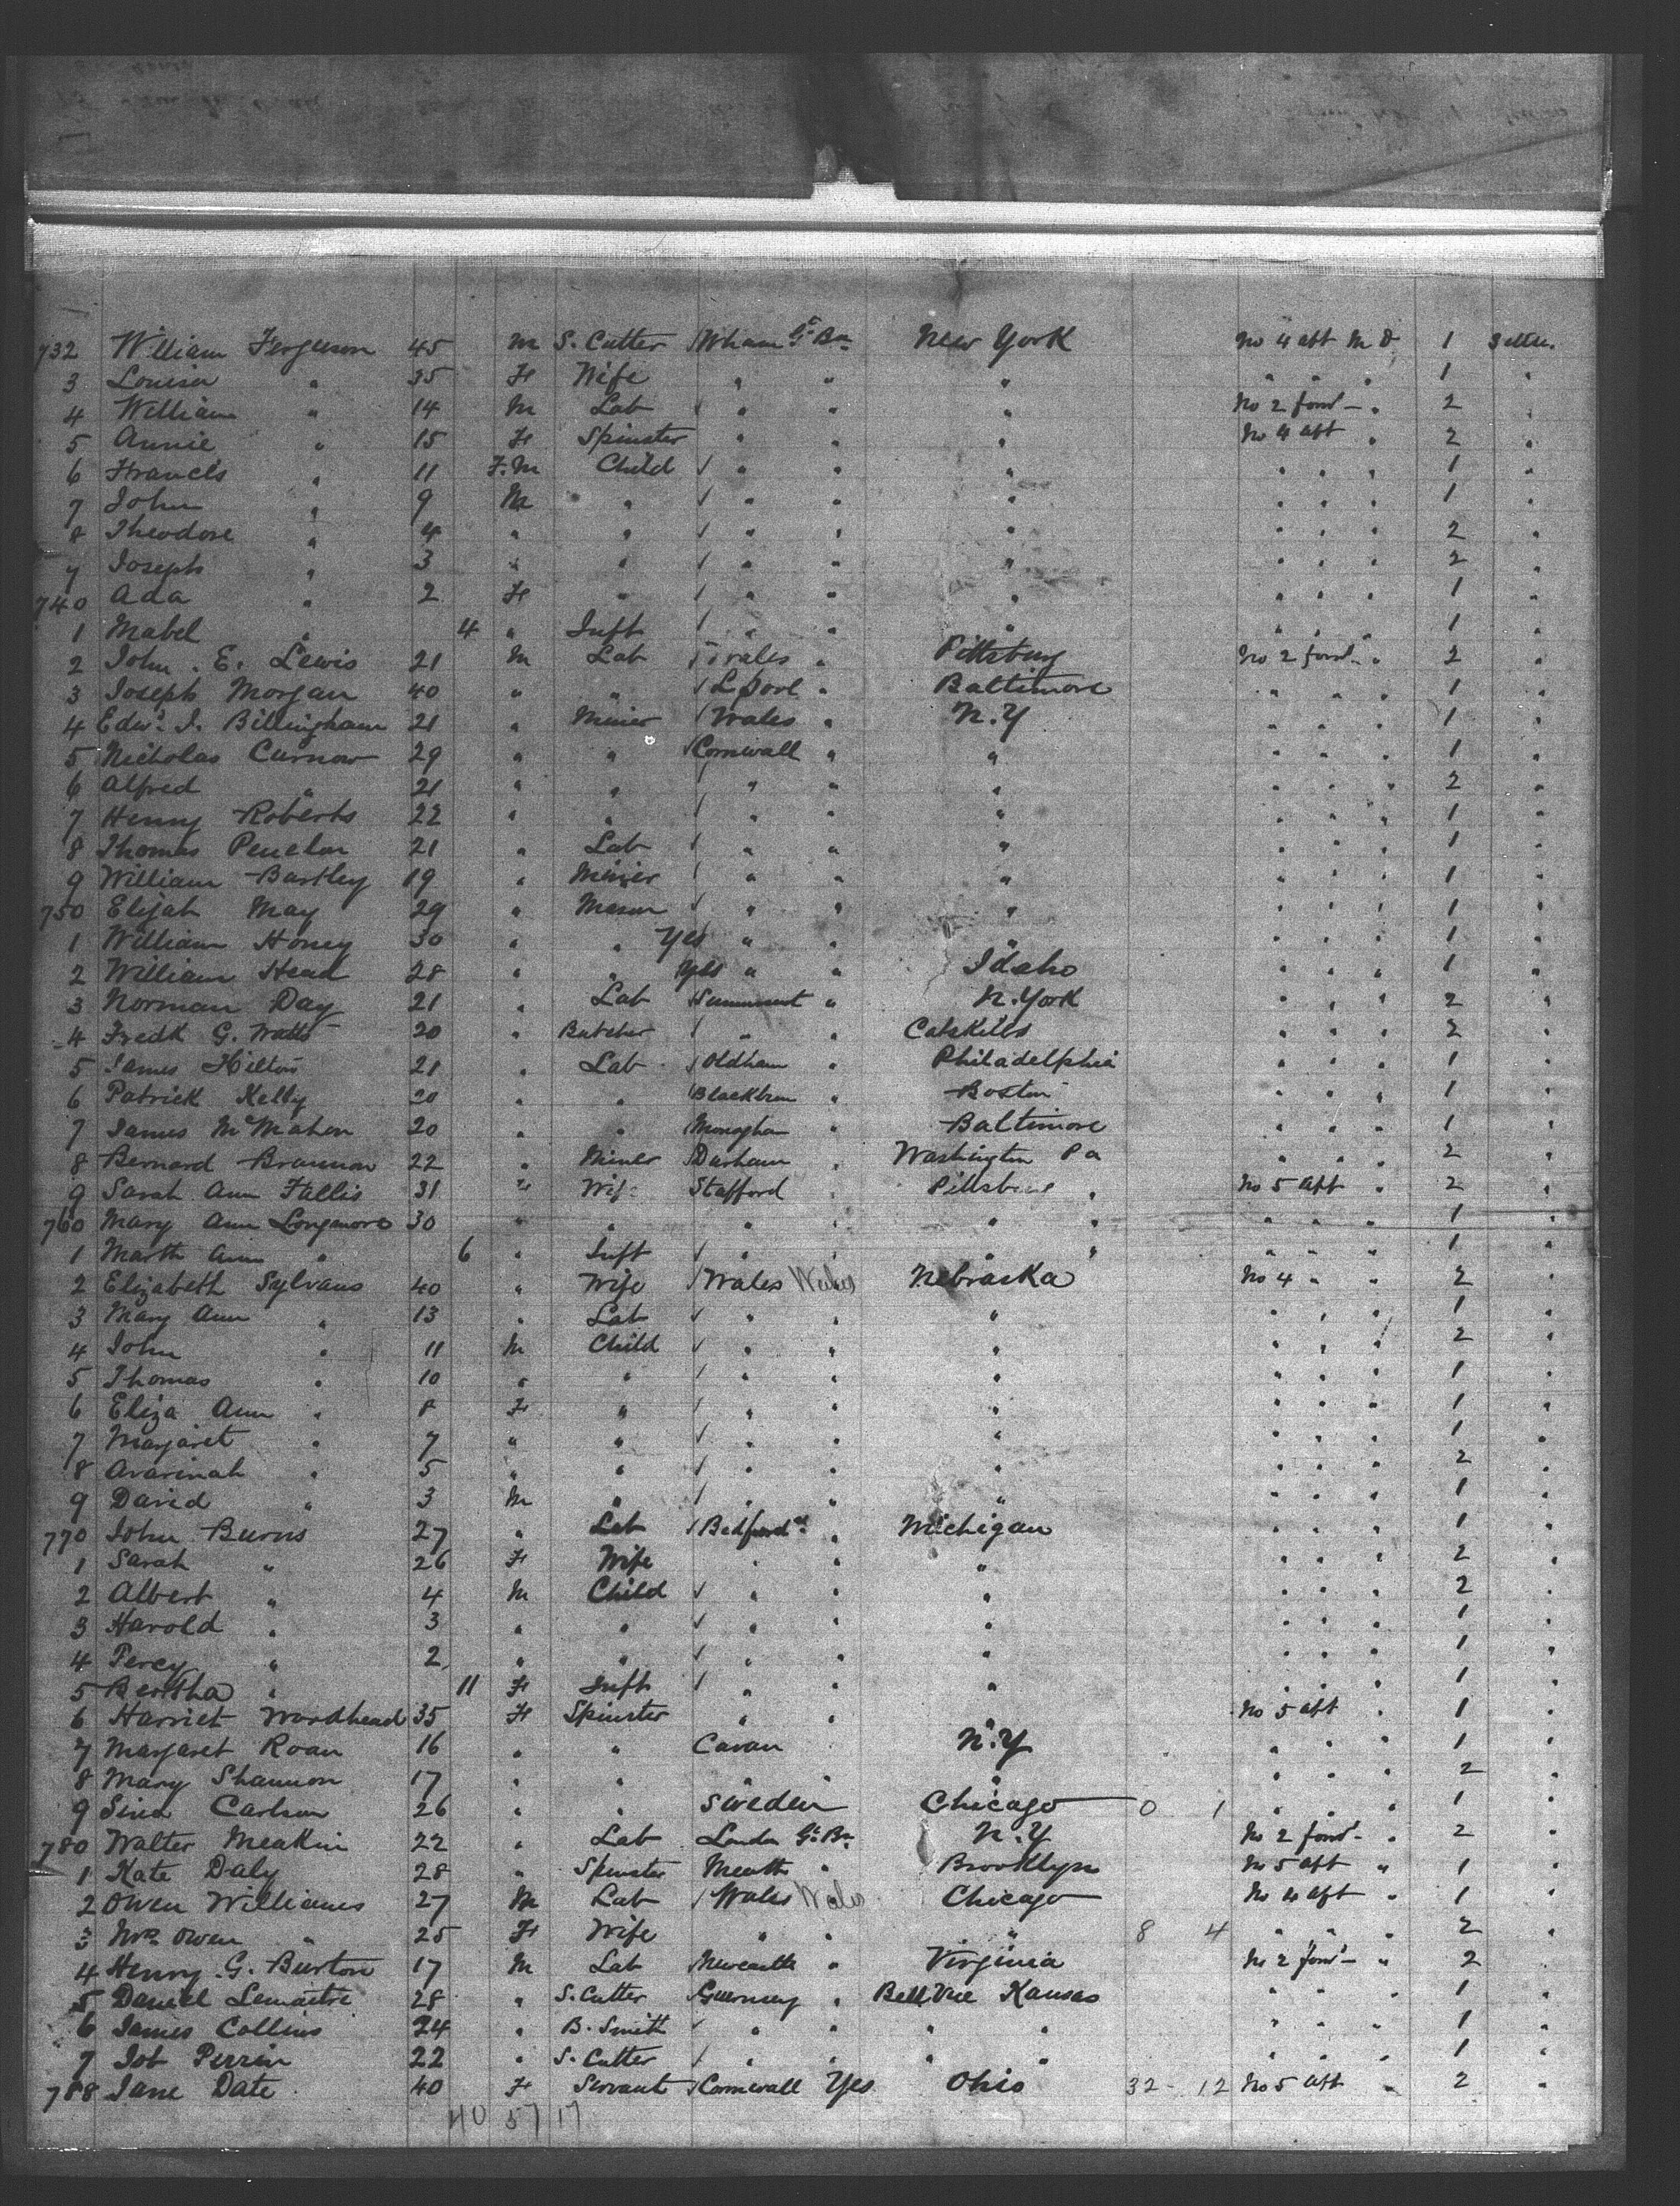 732 William Ferguson 45 M S. Cutter Wham Gt Bn New York No 4 aft M D 1 Settlr.
3 Louisa " 35 F Wife " " " " " " 1 "
4 William " 14 M Lab " " " No 2 forwd " 2 "
5 Annie " 15 F Spinster " " " No 4 aft " 2 "
6 Francis " 11 F. M Child " " " " " " 1 "
7 John " 9 M " " " " " " " 1 "
8 Theodore " 4 " " " " " " " " 2 "
9 Joseph " 3 " " " " " " " " 2 "
740 Ada " 2 F " " " " " " " 1 "
1 Mabel " 4 " Inft " " " " " " 1 "
2 John . E. Lewis 21 M Lab Wales " Pittsburg No 2 forwd " 2 "
3 Joseph Morgan 40 " " Lpool " Baltimore " " " 1 "
4 Edwd. J. Billingham 21 " Miner Wales " N.Y " " " 1 "
5 Nicholas Curnow 29 " " Cornwall " " " " " 1 "
6 Alfred " 21 " " " " " " " " 2 "
7 Henry Roberts 22 " " " " " " " " 1 "
8 Thomas 21 " Lab " " " " " " 1 "
9 William Bartley 19 " Miner " " " " " " 1 "
750 Elijah May 29 " Mason " " " " " " 1 "
1 William Honey 30 " " Yes " " " " " " 1 "
2 William Head 28 " " Yes " " Idaho " " " 1 "
3 Norman Day 21 " Lab " N. York " " " 2 "
4 Fredk G. Watts 20 " Butcher " " Catskills " " " 2 "
5 James Hilton 21 " Lab Oldham " Philadelphia " " " 1 "
6 Patrick Kelly 20 " " Blackburn " Boston " " " 1 "
7 James McMahon 20 " " Monaghan " Baltimore " " " 1 "
8 Bernard Brannon 22 " Miner Durham " Washington Pa " " " 2 "
9 Sarah Ann Fallis 31 F Wife Stafford " " No 5 aft " 2 "
760 Mary Ann Longmore 30 " " " " " " " " " 1 "
1 Marth Ann " 6 " Inft " " " " " " " 1 "
2 Elizabeth Sylvans 40 " Wife Wales Wales Nebraska No 4 " " 2 "
3 Mary Ann " 13 " Lab " " " " " " 1 "
4 John " 11 M Child " " " " " " 2 "
5 Thomas " 10 " " " " " " " " 1 "
6 Eliza Ann " 8 F " " " " " " " 1 "
7 Margaret " 7 " " " " " " " " 1 "
8 Avarinah " 5 " " " " " " " " 2 "
9 David " 3 M " " " " " " " 1 "
770 John Burns 27 " Lab Bedford " Michigan " " " 1 "
1 Sarah " 26 F Wife " " " " " " 2 "
2 Albert " 4 M Child " " " " " " 2 "
3 Harold " 3 " " " " " " " " 1 "
4 Percy " 2 " " " " " " " " 1 "
5 Bertha " 11 F Inft " " " " " " 1 "
6 Harriet Woodhead 35 F Spinster " " " No 5 aft " 1 "
7 Margaret Roan 16 " " Cavan " N.Y " " " 1 "
8 Mary Shannon 17 " " " " " " " " 2 "
9 Sina Carlson 26 " " Sweden Chicago 0 1 " " " 1 "
780 Walter Meakin 22 " Lab London Gt Bn N.Y No 2 forwd " 2 "
1 Kate Daly 28 " Spinster Meath " Brooklyn No 5 aft " 1 "
2 Owen Williams 27 M Lab Wales Wales Chicago No 4 aft " 1 "
3 Mrs Owen " 25 F Wife " " " 8 4 " " " 2 "
4 Henry . G. Burton 17 M Lab Newcastle " Virginia No 2 forwd " 2 "
5 Daniel Lemaitre 28 " S. Cutter Guernsey " Bell Vue Kansas " " " 1 "
6 James Collins 24 " B. Smith " " " " " " " 1 "
7 Job Perrin 22 " S. Cutter " " " " " " " 1 "
788 Jane Date 40 F Servant Cornwall Yes Ohio 32 - 12 No 5 aft " 2 "
40 57 17